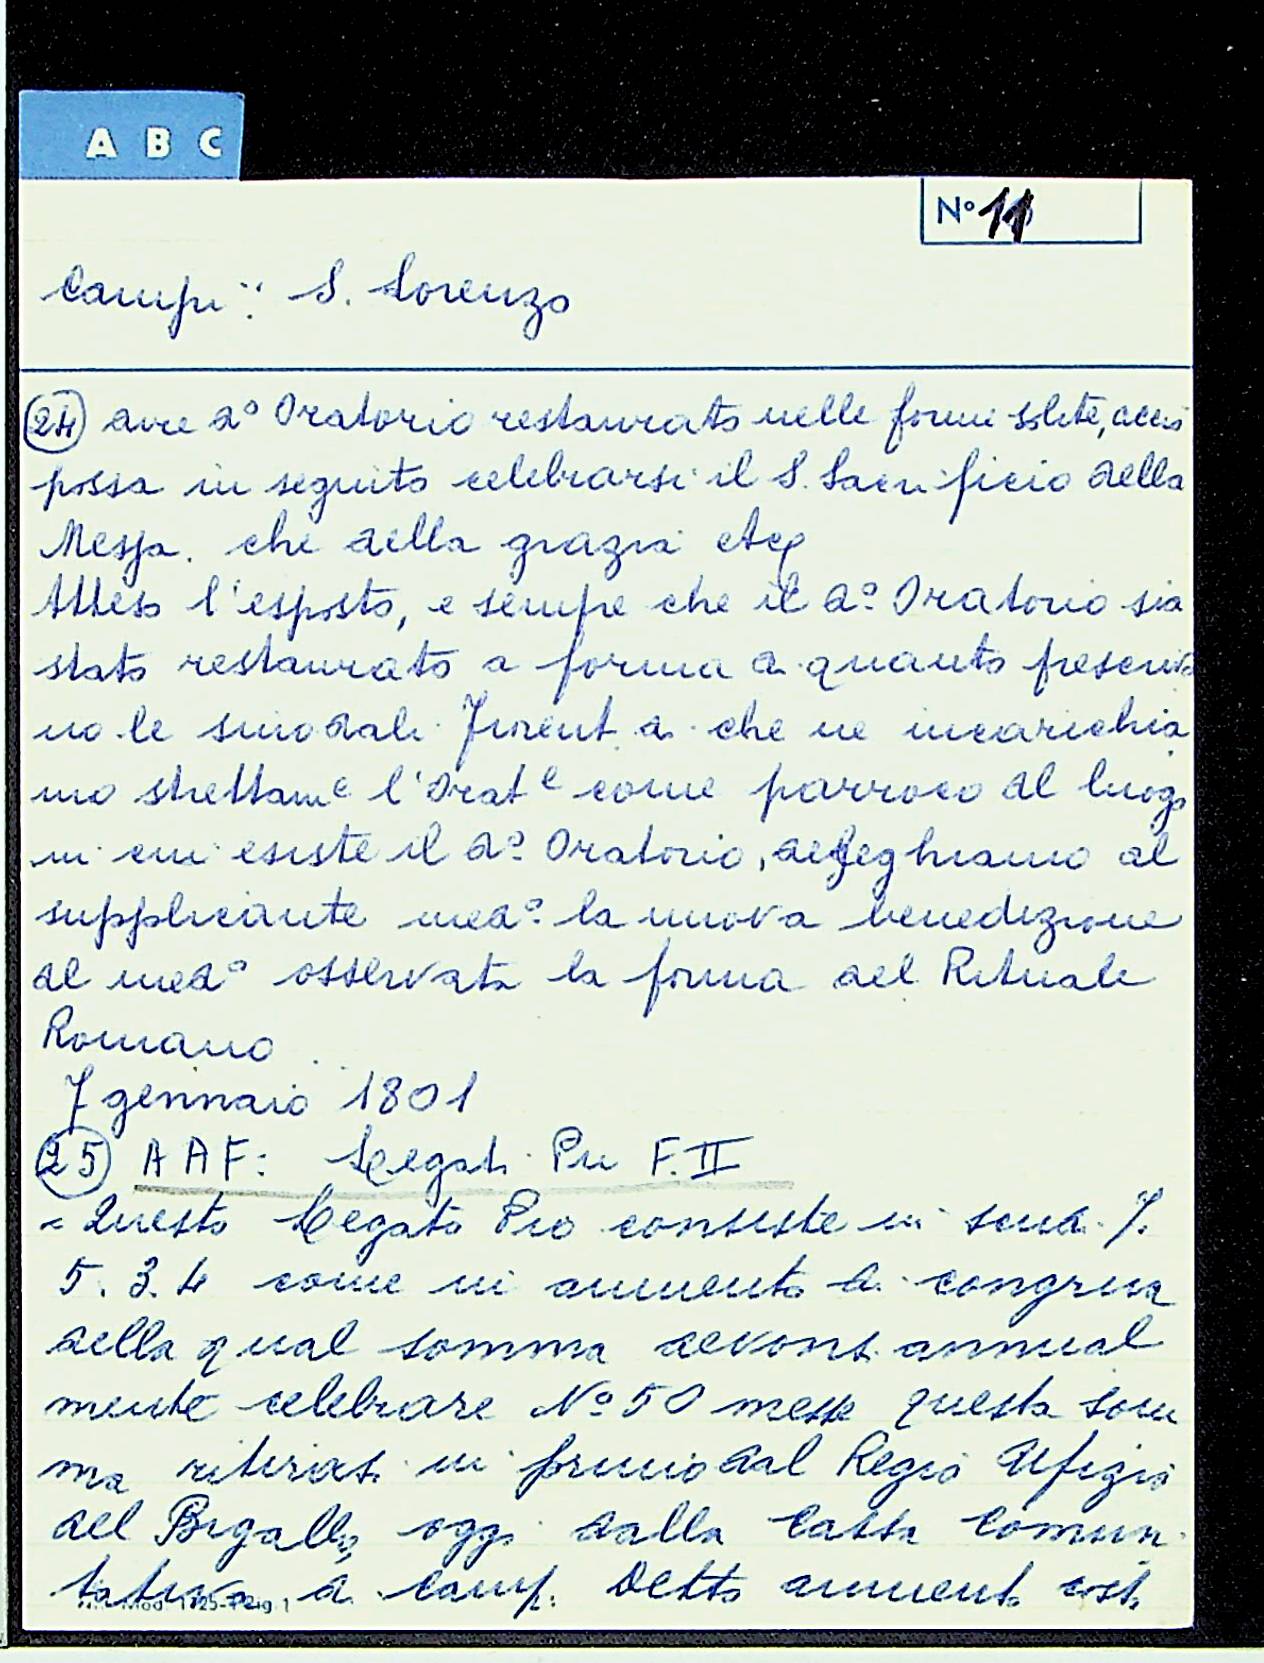 A B C
N° 11
Campi: S. Lorenzo
(24) avre d° Oratorio restaurato nelle forme solite, acciò
possa in seguito celebrarsi il S. Sacrificio della
Messa. che della grazia etc
Atteso l'esposto, e sempre che il d° Oratorio sia
stato restaurato a forma di quanto prescrivo
no le sinodali Fiorent. di che ne incarichia
mo strettamᵉ l'Oratᵉ come parroco del luogo
in cui esiste il d° Oratorio, deleghiamo al
supplicante med° la nuova benedizione
del med° osservata la forma del Rituale
Romano
7 gennaio 1801
(25) A A F: Legati Pii F. II
= Questo Legato Pio consiste in scudi 7.
5. 3. 4 come in aumento di congrua
della qual somma devonsi annual
mente celebrare N° 50 messe questa som
ma ritirasi in primo dal Regio Ufizio
del Bigallo, oggi dalla Cassa Comuni
tativa di Campi. Detto aumento